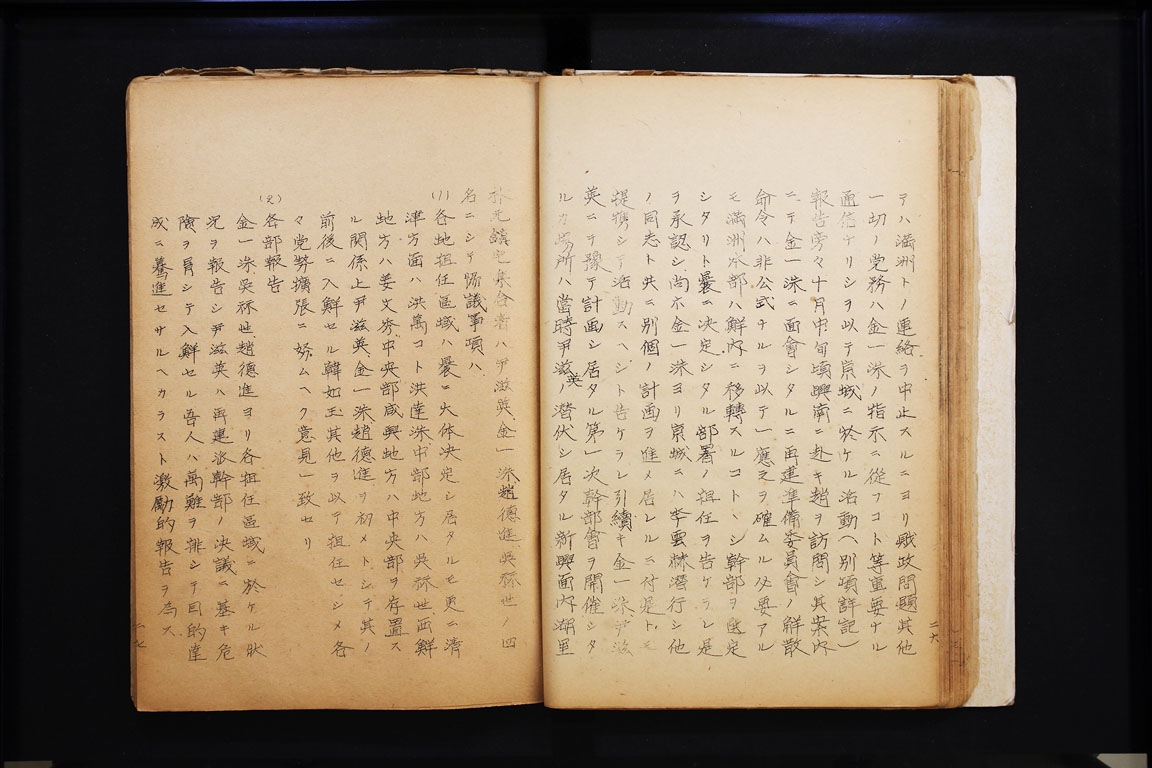 テハ満洲ト連絡ヲ中止スルニヨリ戦政問題其他
一切ノ党務ハ金一洙ノ指示ニ従フコト等重要ナル
通信ケリシヲ以テ京城ニ於ケル活動ヘ別項詳記)
報告旁々十月中旬頃興南ニ赴キ趙ヲ訪問シ其案内
ニテ金一洙ニ面會シタルニ再建準備委員會ノ解散
命令ハ非公式ナルヲ以テ一應之ヲ確ムル必要アル
モ満洲本部ハ鮮内ニ移轉スルコトヽシ幹部ヲ選定
シタリト曩ニ決定シタル部署ノ担任ヲ告ケラレ是
ヲ承認シ尚ホ金一洙ヨリ京城ニハ李雲赫潜行シ他
ノ同志ト共ニ別個ノ計画ヲ進メ居レルニ付是トモ
提携シテ活動スヘシト告ケラレ引續キ金一洙、尹滋
英ニテ豫テ計画シ居タル第一次幹部會ヲ開催シタ
ルカ場所ハ當時尹滋英ノ潜伏シ居タル新興面内湖里
二六
朴元鎮宅集合者ハ尹滋英、金一洙、趙德進、吳祘世ノ四
名ニシテ協議事項ハ
(1)各地担任區域ハ曩ニ大体決定シ居タルモ更ニ清
津方面ハ洪萬コト洪達洙中部地方ハ吳祘世西鮮
地方ハ姜文秀、中央部咸興地方ハ中央部ヲ存置ス
ル関係上尹滋英、金一洙、趙德進ヲ初メトシテ其ノ
前後ニ入鮮セル韓如玉其他ヲ以テ担任セシメ各
々党勢擴張ニ努ムヘク意見一致セリ
(2)各部報告
金一洙、吳祘世趙德進ヨリ各担任區域ニ於ケル狀
况ヲ報告シ尹滋英ハ再建派幹部ノ決議ニ基キ危
險ヲ冒シテ入鮮セル吾人ハ萬難ヲ排シテ目的達
成ニ驀進セサルヘカラスト激励的報告ヲ為ス
二七